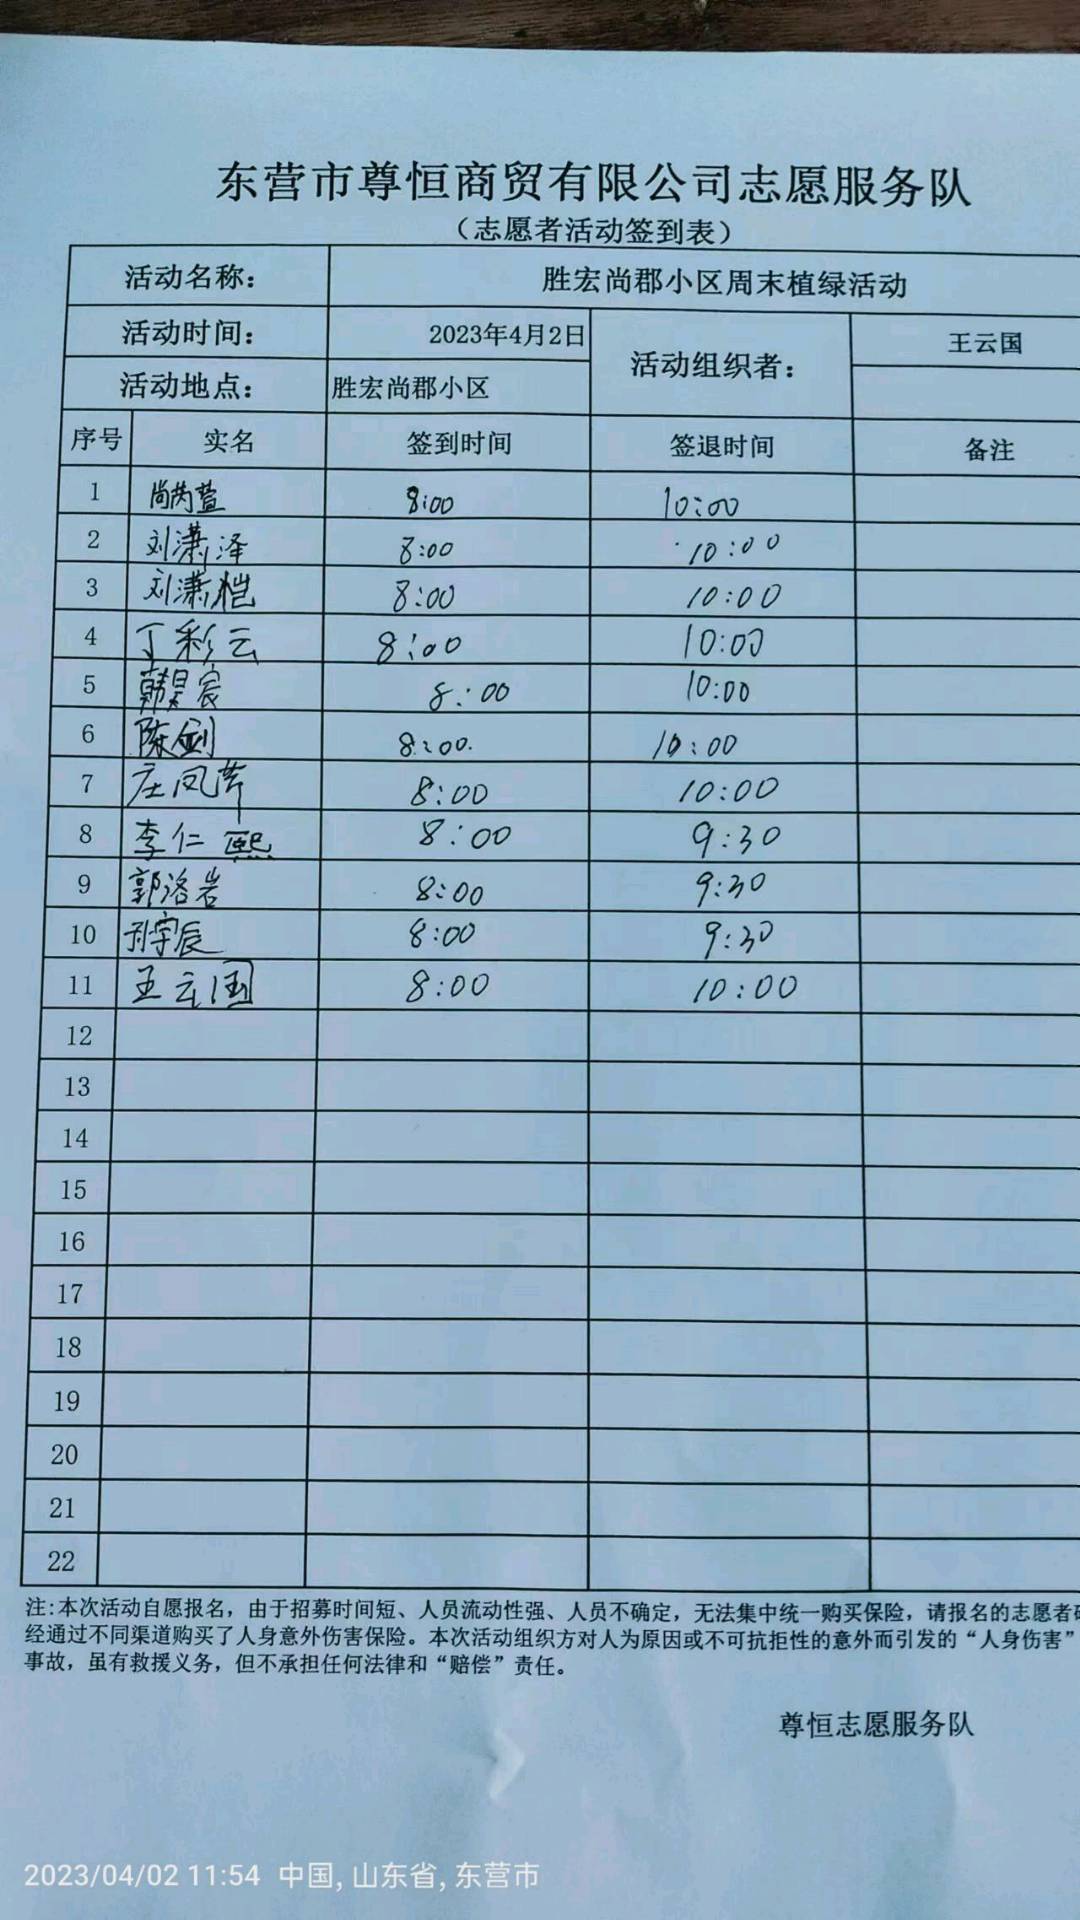 东营市尊恒商贸有限公司志愿服务队
（志愿者活动签到表）
活动名称： 胜宏尚郡小区周末植绿活动
活动时间： 2023年4月2日 活动组织者： 王云国
活动地点： 胜宏尚郡小区
序号 实名 签到时间 签退时间 备注
1 尚芮萱 8:00 10:00
2 刘潇泽 8:00 10:00
3 刘潇恺 8:00 10:00
4 丁彩云 8:00 10:00
5 韩昊宸 8:00 10:00
6 陈剑 8:00 10:00
7 庄凤芹 8:00 10:00
8 李仁熙 8:00 9:30
9 郭洛岩 8:00 9:30
10 孙宇辰 8:00 9:30
11 王云国 8:00 10:00
12
13
14
15
16
17
18
19
20
21
22
注:本次活动自愿报名，由于招募时间短、人员流动性强、人员不确定，无法集中统一购买保险，请报名的志愿者
经通过不同渠道购买了人身意外伤害保险。本次活动组织方对人为原因或不可抗拒性的意外而引发的“人身伤害”
事故，虽有救援义务，但不承担任何法律和“赔偿”责任。
尊恒志愿服务队
2023/04/02 11:54 中国, 山东省, 东营市